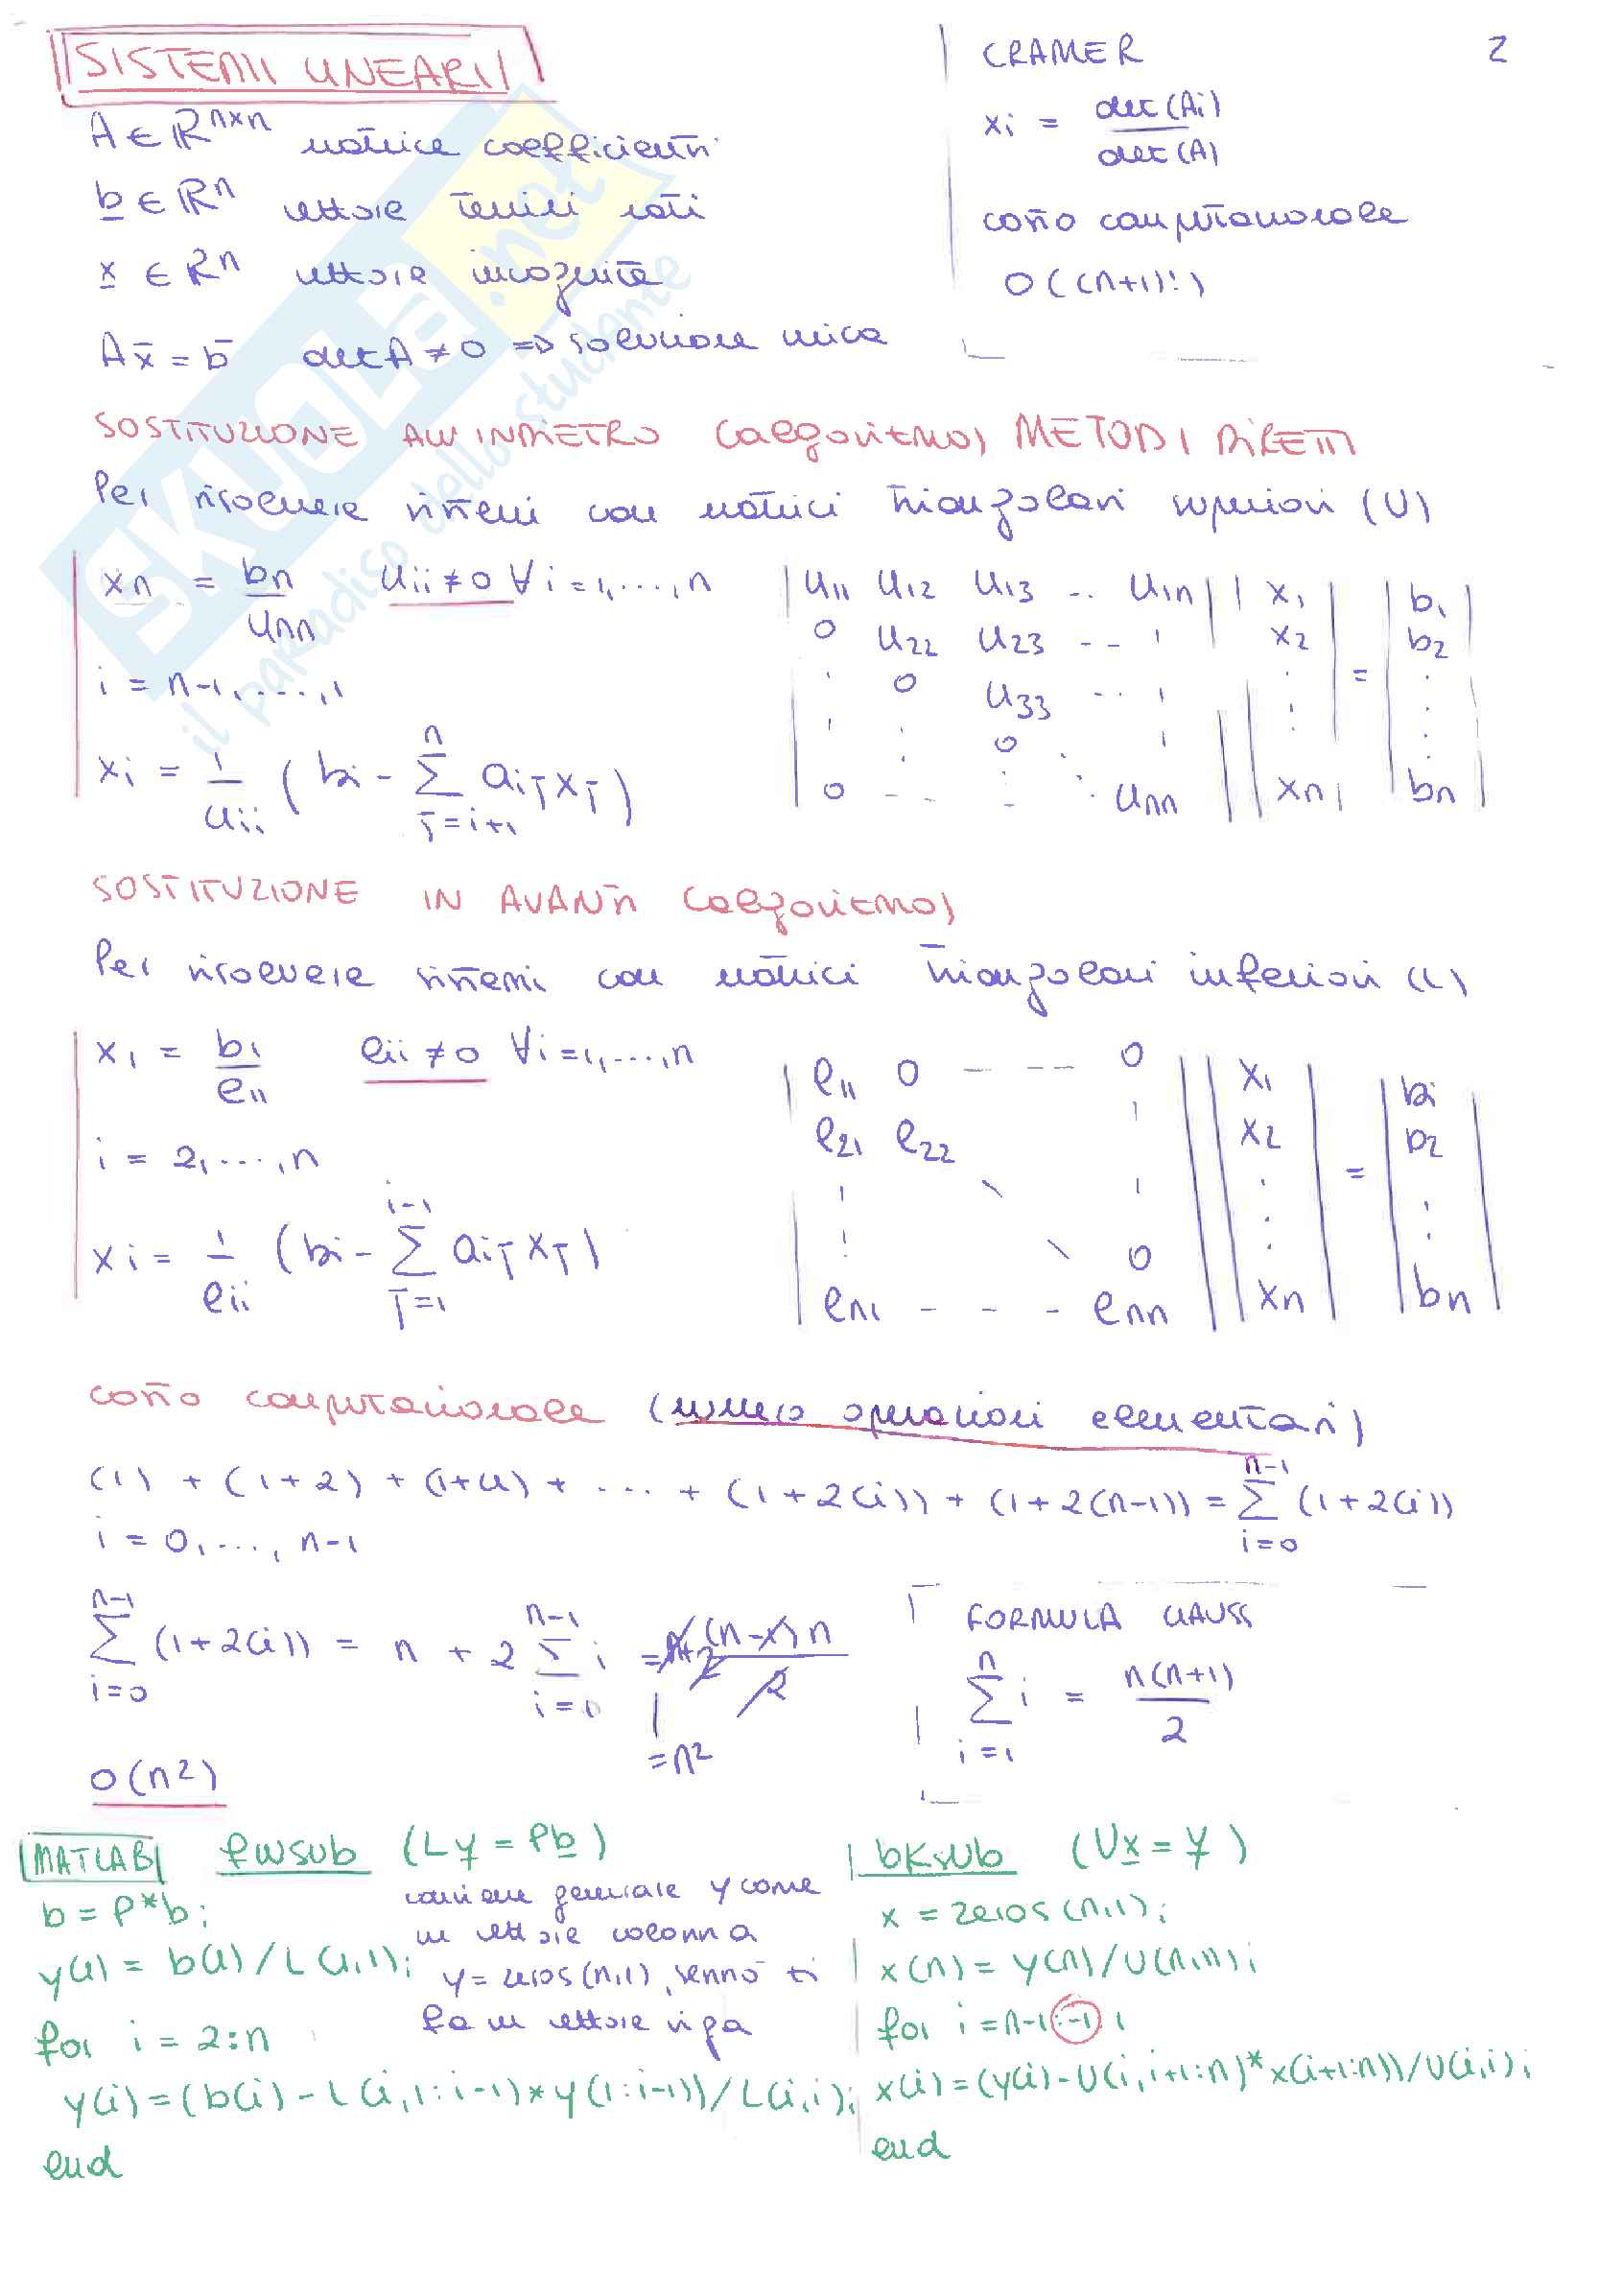 SISTEMI LINEARI
2
A ∈ ℝnxn matrice coefficienti
b ∈ ℝn vettore termini noti
x ∈ ℝn vettore incognite
Ax̄ = b̄ det A ≠ 0 => soluzione unica
CRAMER
xi = det(Ai) / det(A)
costo computazionale
O((n+1)!)
SOSTITUZIONE ALL'INDIETRO (algoritmo) METODI DIRETTI
Per risolvere sistemi con matrici triangolari superiori (U)
xn = bn / unn uii ≠ 0 ∀i = 1,...,n
i = n-1,...,1
xi = 1/uii (bi - Σ j=i+1 n aij xj)
u11 u12 u13 .. u1n x1 b1
0 u22 u23 --- x2 b2
0 u33 ..
0
0 -- unn xn = bn
SOSTITUZIONE IN AVANTI (algoritmo)
Per risolvere sistemi con matrici triangolari inferiori (L)
x1 = b1 / l11 lii ≠ 0 ∀i = 1,...,n
i = 2,...,n
xi = 1/lii (bi - Σ j=1 i-1 aij xj)
l11 0 --- 0 x1 bi
l21 l22 x2 = b2
0
ln1 --- lnn xn bn
costo computazionale (numero operazioni elementari)
(1) + (1+2) + (1+4) + ... + (1+2(i)) + (1+2(n-1)) = Σ i=0 n-1 (1+2(i))
i = 0,...,n-1
Σ i=0 n-1 (1+2(i)) = n + 2 Σ i=0 n-1 i = n+2 (n-1)n / 2
= n²
O(n²)
FORMULA GAUSS
Σ i=1 n i = n(n+1) / 2
MATLAB fwsub (Ly = Pb)
b = P*b;
y(1) = b(1)/L(1,1);
for i = 2:n
y(i) = (b(i) - L(i,1:i-1)*y(1:i-1))/L(i,i);
end
conviene generare y come
un vettore colonna
y = zeros(n,1), sennò ti
fa un vettore riga
bksub (Ux = y)
x = zeros(n,1);
x(n) = y(n)/U(n,n);
for i = n-1:-1:1
x(i) = (y(i) - U(i,i+1:n)*x(i+1:n))/U(i,i);
end
SKUOLA.net
il paradiso dello studente